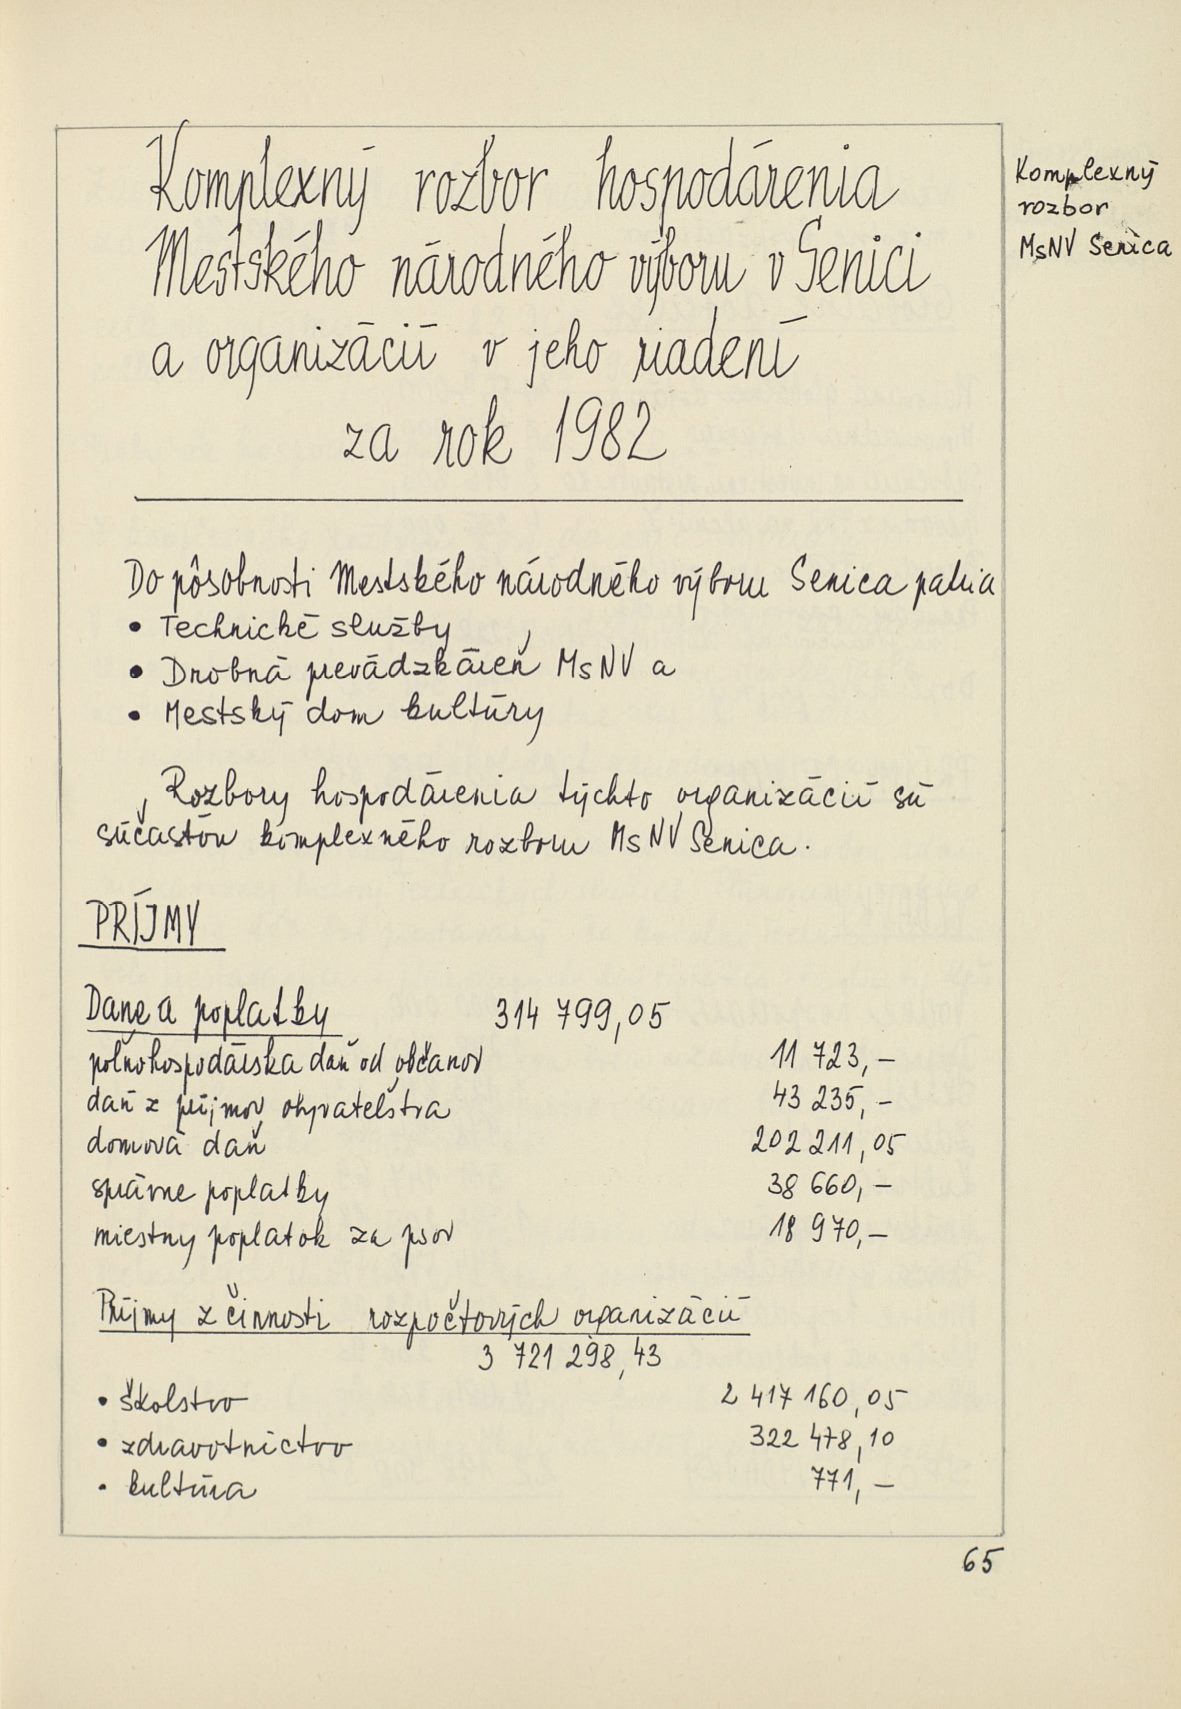 Komplexný rozbor hospodárenia
Mestského národného výboru v Senici
a organizácií v jeho riadení
za rok 1982
Komplexný
rozbor
MsNV Senica
Do pôsobnosti Mestského národného výboru Senica patria
• Technické služby
• Drobná prevádzkáreň MsNV a
• Mestský dom kultúry
Rozbory hospodárenia týchto organizácií sú
súčasťou komplexného rozboru MsNV Senica.
PRÍJMY
Dane a poplatky 314 799,05
poľnohospodárska daň od občanov 11 723,-
daň z príjmov obyvateľstva 43 235,-
domová daň 202 211,05
správne poplatky 38 660,-
miestny poplatok za psov 18 970,-
Príjmy z činnosti rozpočtových organizácií
3 721 298,43
• školstvo 2 417 160,05
• zdravotníctvo 322 478,10
• kultúra 771,-
65